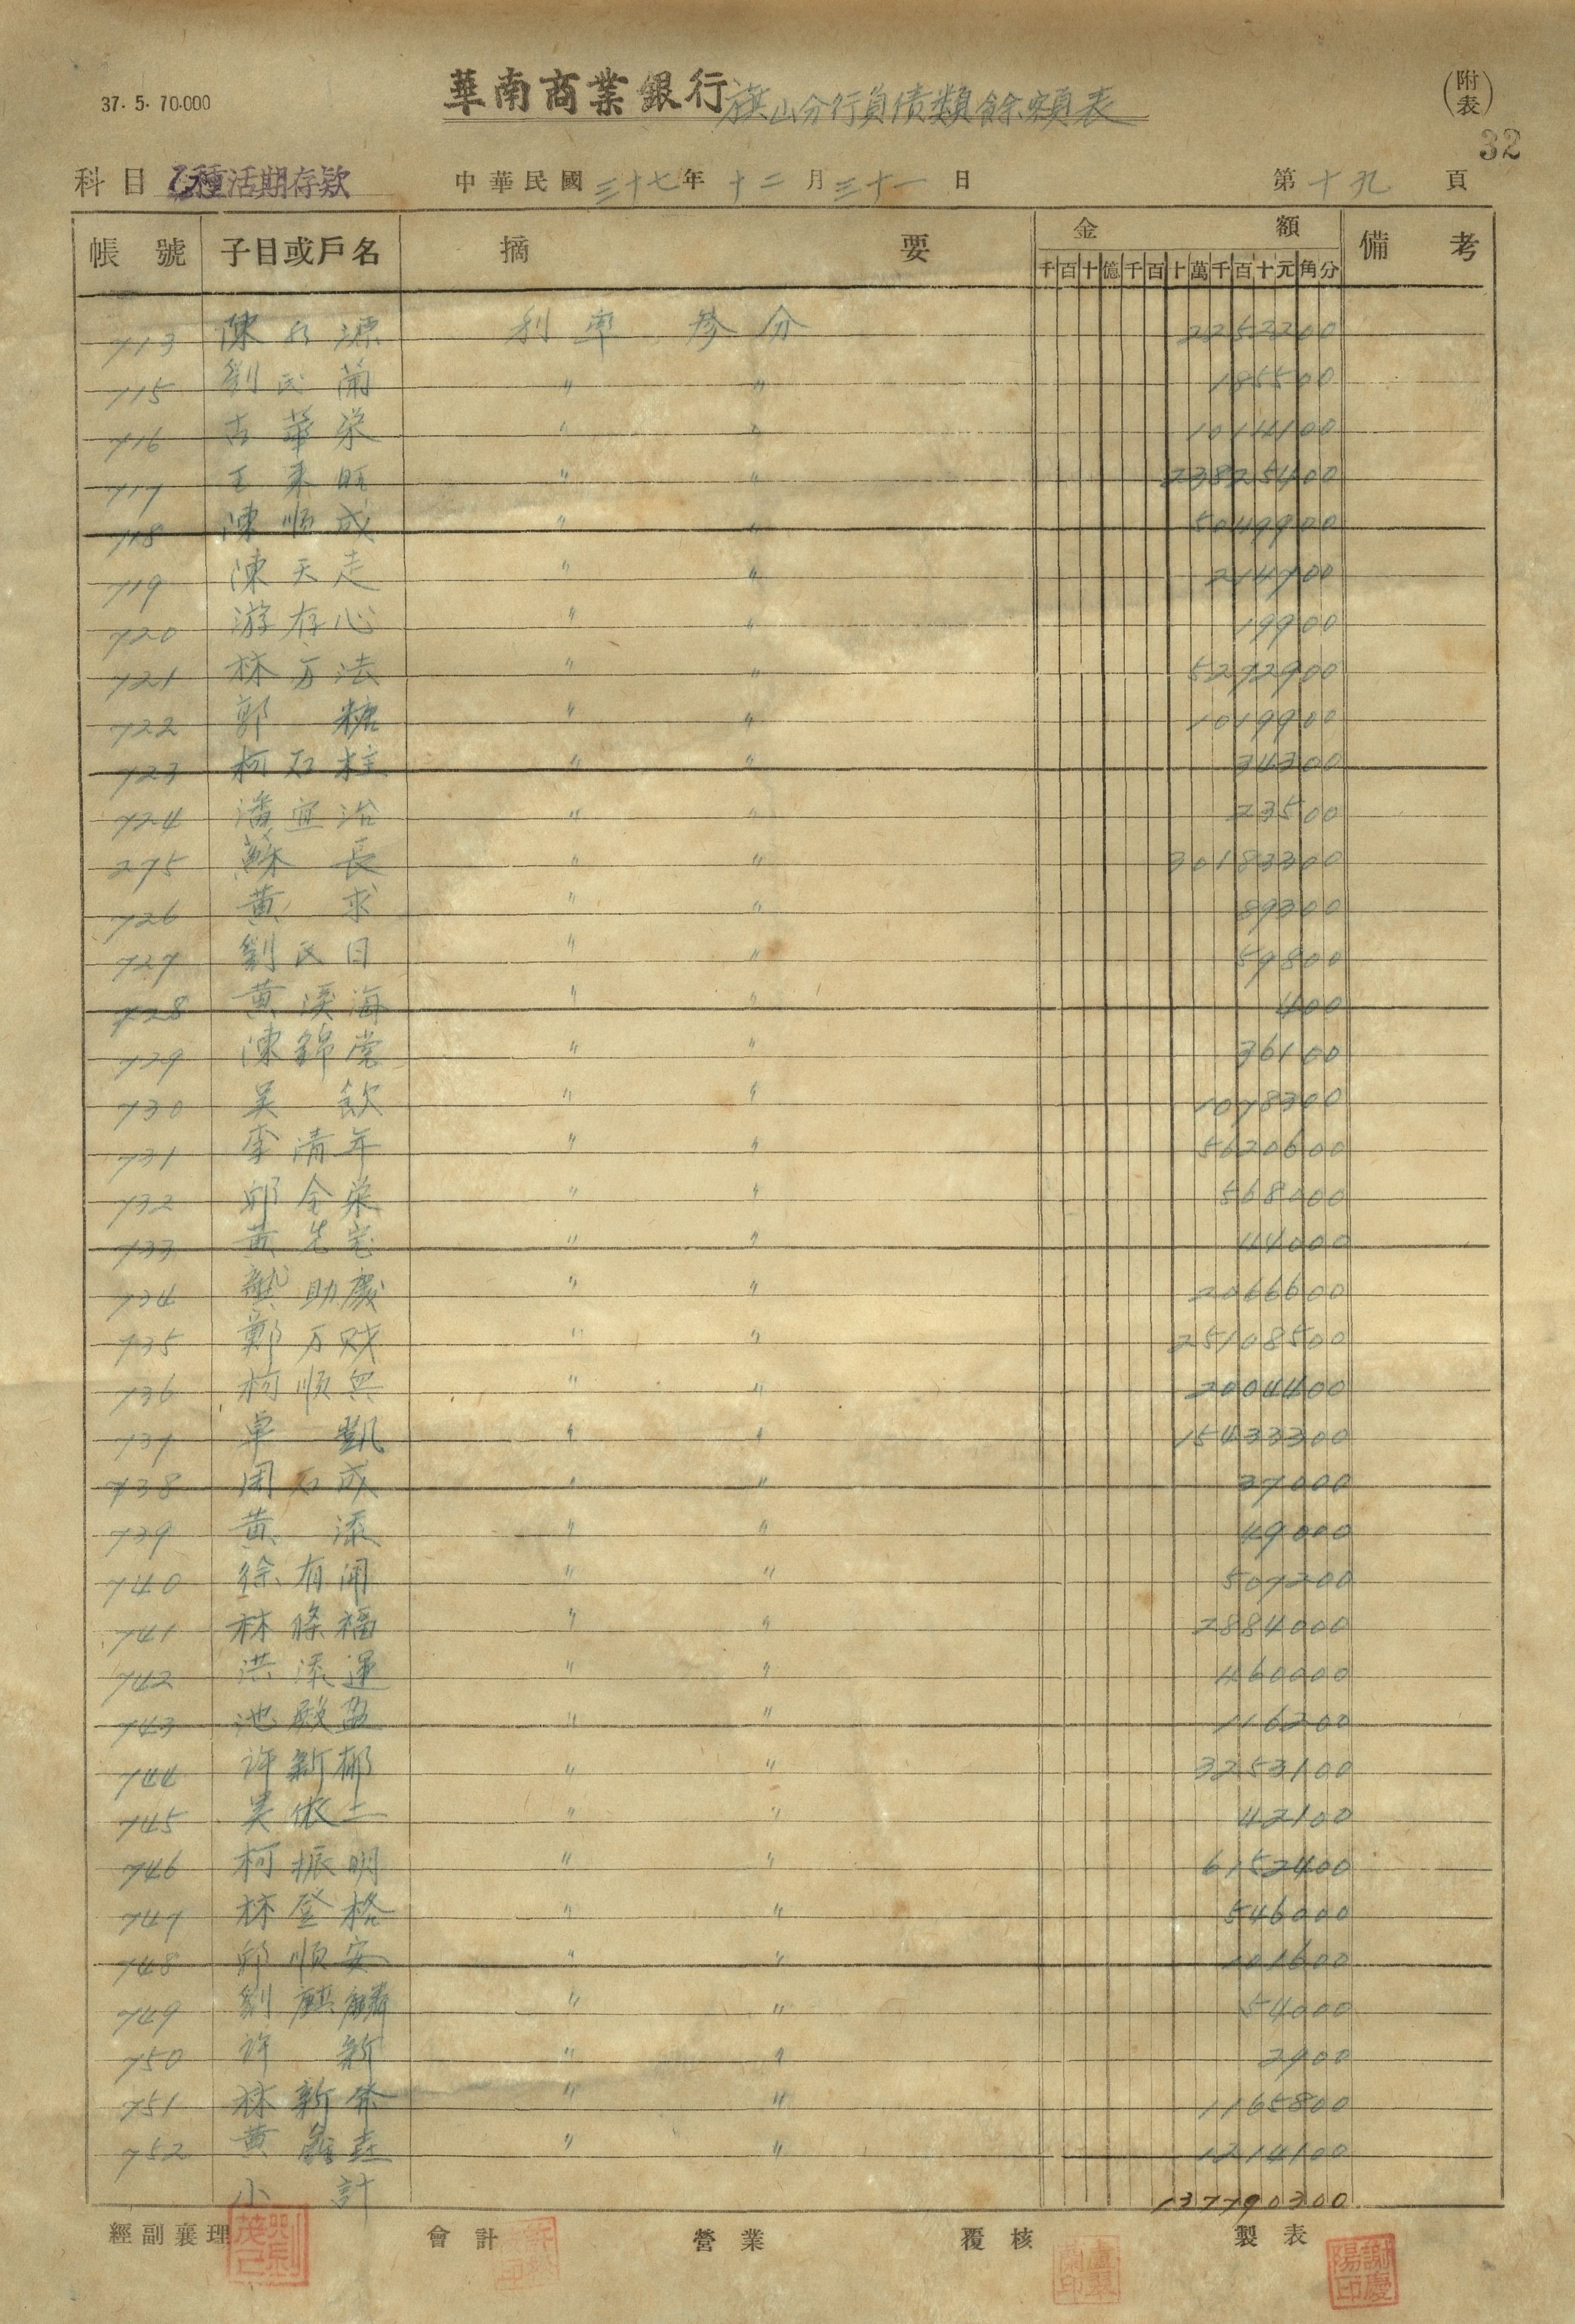 37. 5. 70.000
華南商業銀行旗山分行負債類餘額表
(附表)
32
科目 乙種活期存款 中華民國三十七年十二月三十一日 第十九頁
帳號 子目或戶名 摘要 金額 備考
千百十億千百十萬千百十元角分
713 陳水源 利率參分 2252200
715 劉民蘭 〃 〃 185500
716 古華榮 〃 〃 1014100
717 王來旺 〃 〃 23825400
718 陳順成 〃 〃 5049900
719 陳天走 〃 〃 214700
720 游存心 〃 〃 19900
721 林万法 〃 〃 5272900
722 郭糖 〃 〃 1019900
723 柯石柱 〃 〃 34300
724 潘宜治 〃 〃 23500
275 蘇長 〃 〃 30183300
726 黃求 〃 〃 89300
727 劉民日 〃 〃 59800
728 黃溪海 〃 〃 400
729 陳錦堂 〃 〃 36100
730 吳欽 〃 〃 1078300
731 李清年 〃 〃 5620600
732 邱全榮 〃 〃 568000
733 黃先宅 〃 〃 44000
734 龔助慶 〃 〃 2066600
735 鄭万財 〃 〃 25108500
736 柯順興 〃 〃 2004400
737 卓凱 〃 〃 15433300
738 周石成 〃 〃 37000
739 黃添 〃 〃 49000
740 徐有開 〃 〃 507200
741 林條福 〃 〃 2884000
742 洪添運 〃 〃 460000
743 池殿盈 〃 〃 116200
744 许新郁 〃 〃 3253100
745 吳依土 〃 〃 42100
746 柯振明 〃 〃 6152400
747 林登格 〃 〃 546000
748 邱順安 〃 〃 101600
749 劉麒麟 〃 〃 54000
750 许新 〃 〃 2900
751 林新發 〃 〃 1165800
752 黃森 〃 〃 1214100
小計 137790300
經副襄理 會計 營業 覆核 製表
謝慶陽印